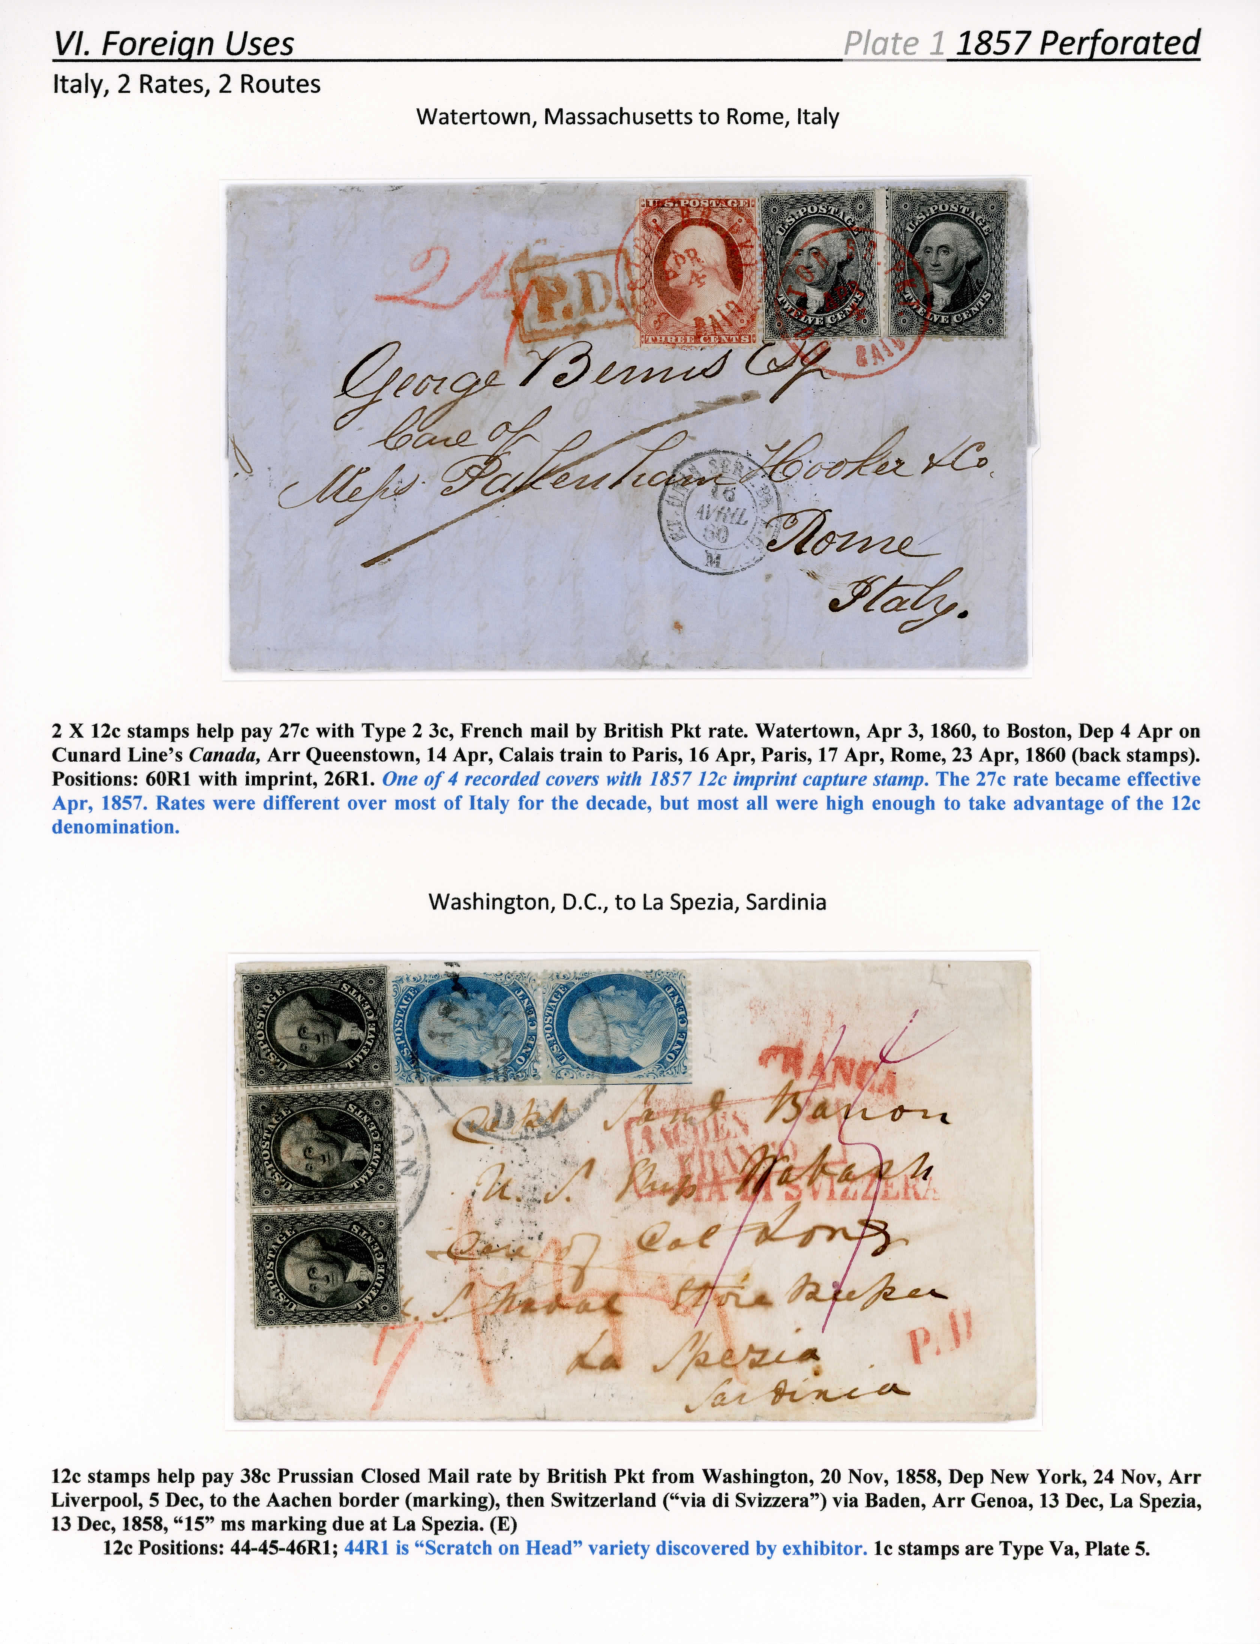 VI. Foreign Uses
Plate 1 1857 Perforated
Italy, 2 Rates, 2 Routes
Watertown, Massachusetts to Rome, Italy
U.S. POSTAGE
THREE CENTS
U.S. POSTAGE
TWELVE CENTS
U.S. POSTAGE
TWELVE CENTS
APR
PAID
PAID
P.D.
George Bemis Esq
Care of
Mess Pakenham Hooker & Co.
Rome
Italy.
16
AVRIL
60
M
2 X 12c stamps help pay 27c with Type 2 3c, French mail by British Pkt rate. Watertown, Apr 3, 1860, to Boston, Dep 4 Apr on
Cunard Line's Canada, Arr Queenstown, 14 Apr, Calais train to Paris, 16 Apr, Paris, 17 Apr, Rome, 23 Apr, 1860 (back stamps).
Positions: 60R1 with imprint, 26R1. One of 4 recorded covers with 1857 12c imprint capture stamp. The 27c rate became effective
Apr, 1857. Rates were different over most of Italy for the decade, but most all were high enough to take advantage of the 12c
denomination.
Washington, D.C., to La Spezia, Sardinia
U.S. POSTAGE
TWELVE CENTS
U.S. POSTAGE
TWELVE CENTS
U.S. POSTAGE
TWELVE CENTS
U.S. POSTAGE
ONE CENT
U.S. POSTAGE
ONE CENT
AACHEN
FRANCO
VIA DI SVIZZERA
Capt Saml Barron
U. S. Ship Wabash
Care of Col Long
U. S. Naval Store Keeper
La Spezia
Sardinia
7
15
P.D
12c stamps help pay 38c Prussian Closed Mail rate by British Pkt from Washington, 20 Nov, 1858, Dep New York, 24 Nov, Arr
Liverpool, 5 Dec, to the Aachen border (marking), then Switzerland ("via di Svizzera") via Baden, Arr Genoa, 13 Dec, La Spezia,
13 Dec, 1858, "15" ms marking due at La Spezia. (E)
12c Positions: 44-45-46R1; 44R1 is "Scratch on Head" variety discovered by exhibitor. 1c stamps are Type Va, Plate 5.